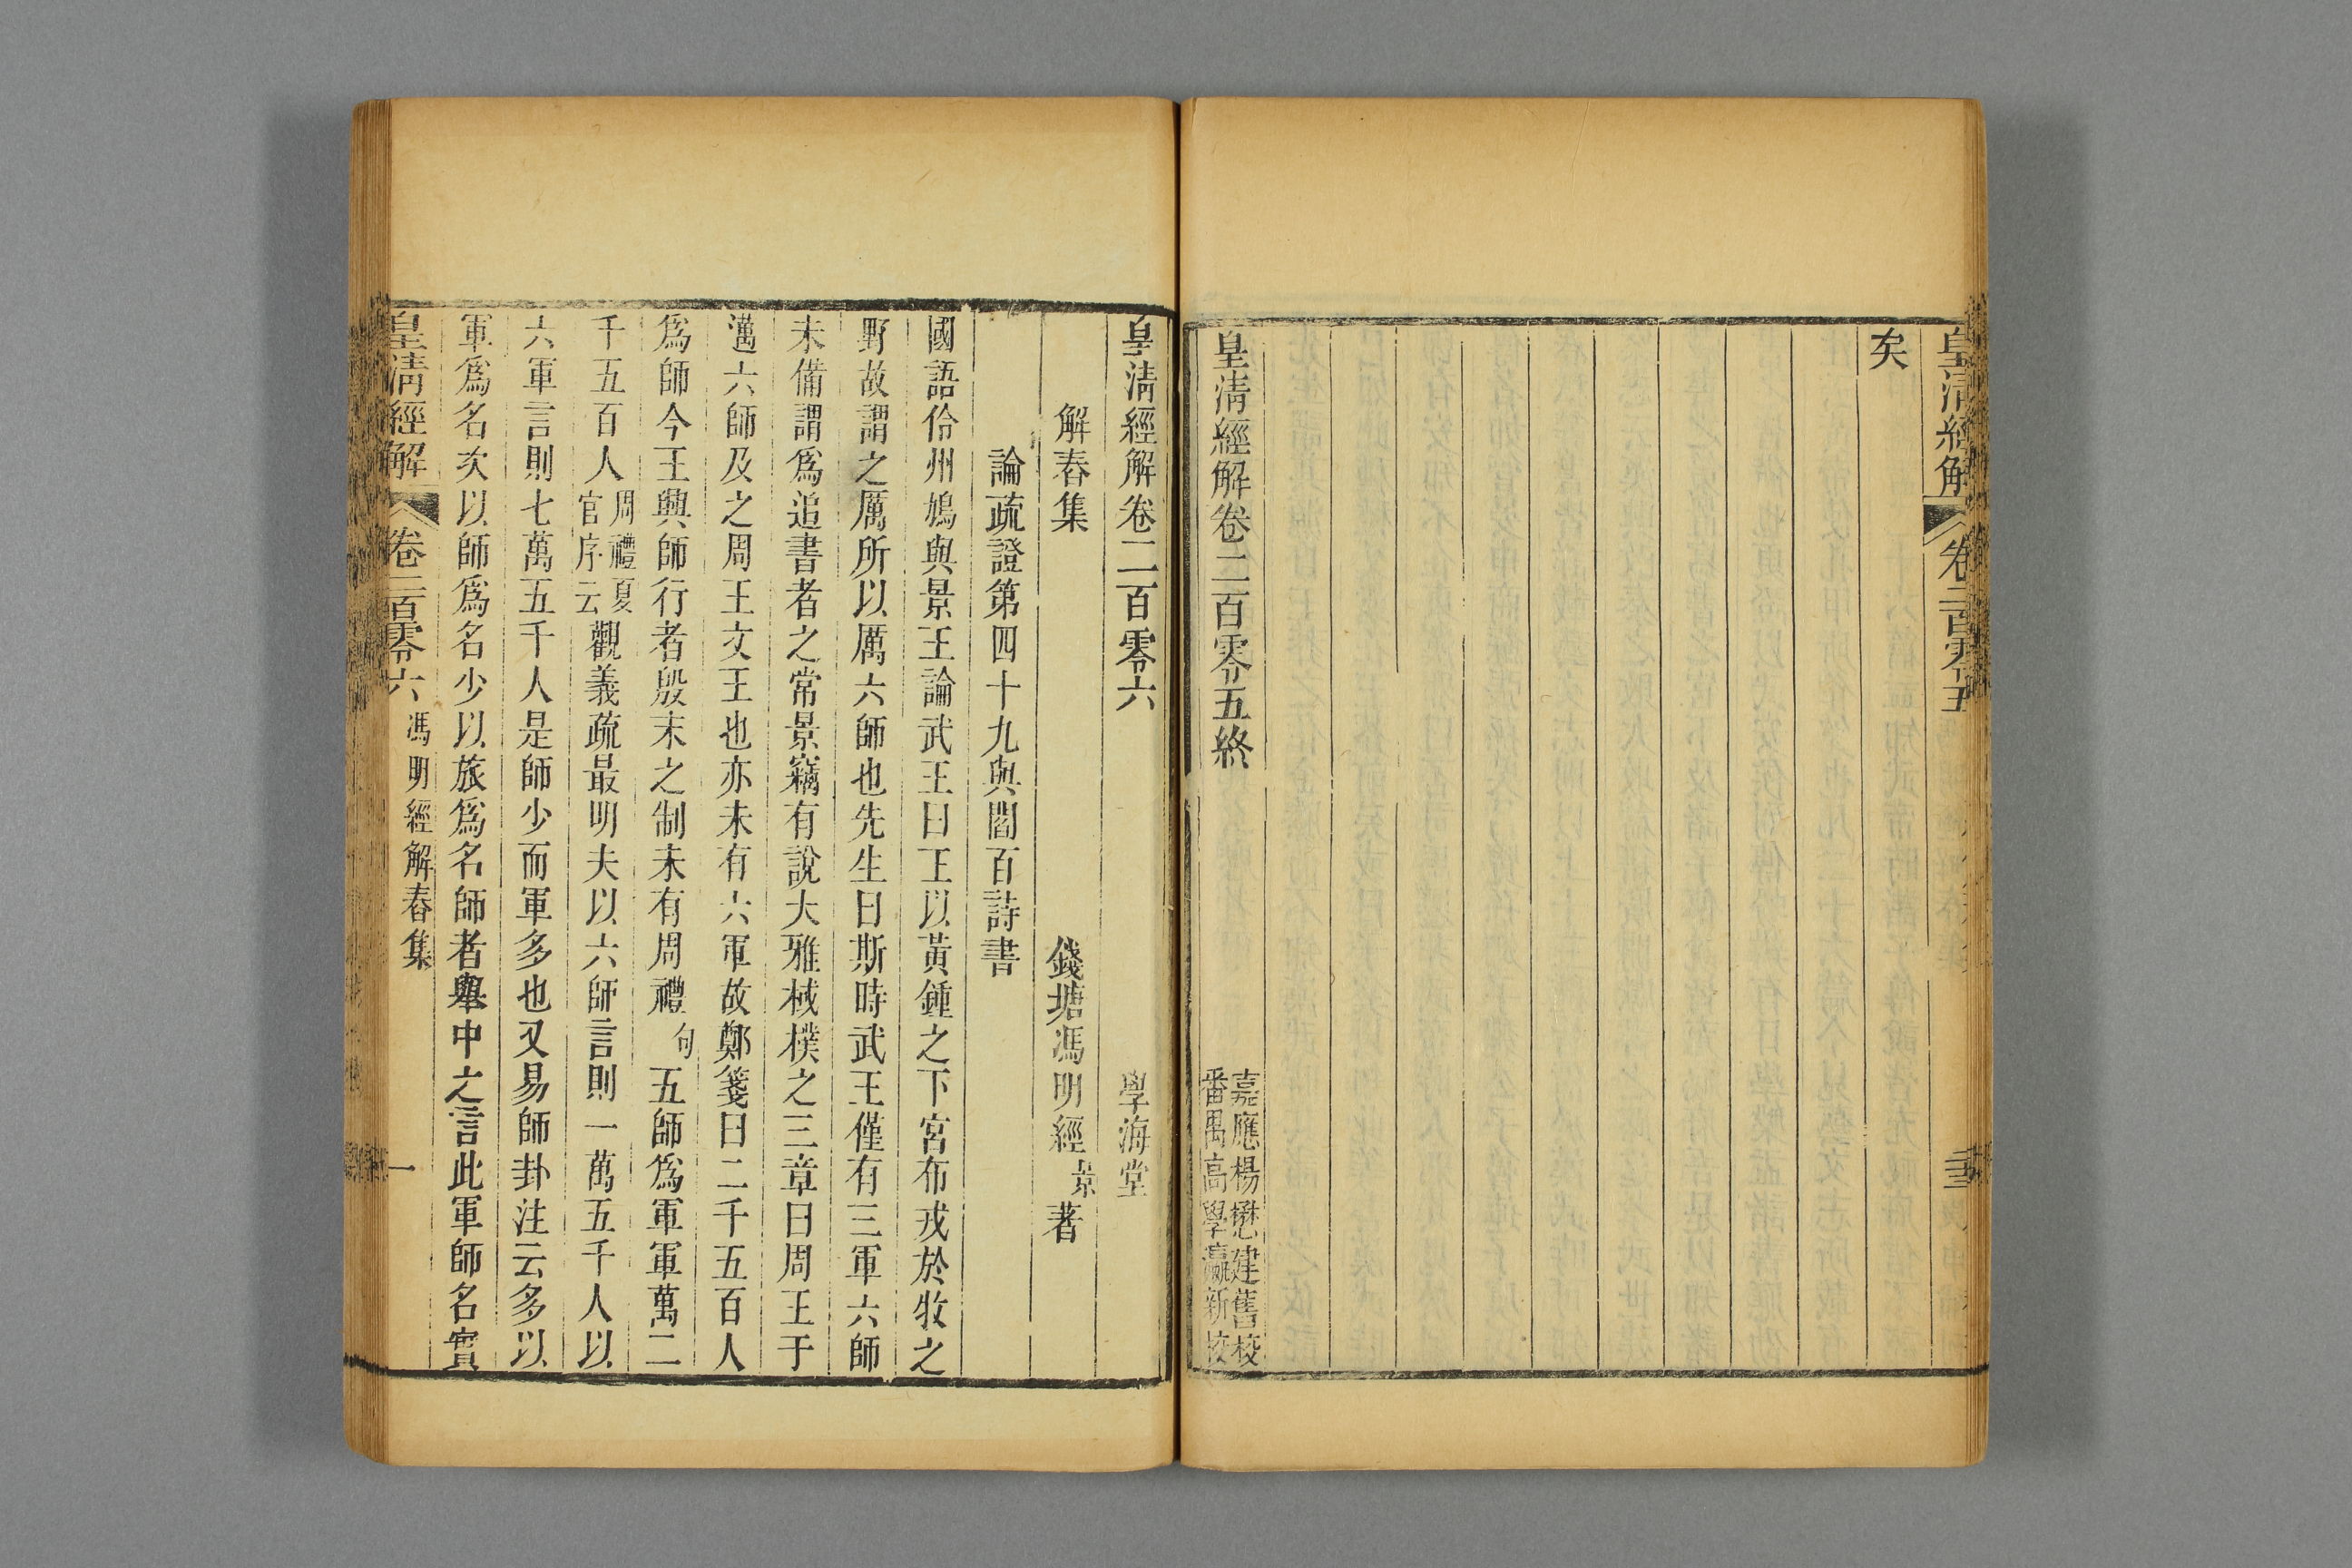 皇清經解 卷二百零五
矣
皇清經解卷二百零五終
嘉應楊懋建舊校
番禺高學瀛新校
皇清經解卷二百零六 學海堂
解舂集 錢塘馮明經景著
論疏證第四十九與閻百詩書
國語伶州鳩與景王論武王曰王以黃鍾之下宮布戎於牧之
野故謂之厲所以厲六師也先生曰斯時武王僅有三軍六師
未備謂爲追書者之常景竊有說大雅棫樸之三章曰周王于
邁六師及之周王文王也亦未有六軍故鄭箋曰二千五百人
爲師今王興師行者殷末之制未有周禮句五師爲軍軍萬二
千五百人周禮夏官序云觀義疏最明夫以六師言則一萬五千人以
六軍言則七萬五千人是師少而軍多也又易師卦注云多以
軍爲名次以師爲名少以旅爲名師者舉中之言此軍師名實
皇清經解 卷二百零六 馮明經解舂集 一